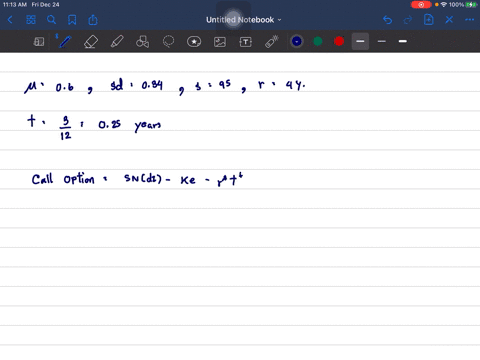 11:13 AM Fri Dec 24
100%
Untitled Notebook
μ = 0.6 , sd = 0.34 , s = 95 , r = 4%.
t = 3/12 = 0.25 years
Call Option = SN(d1) - Ke - r*t